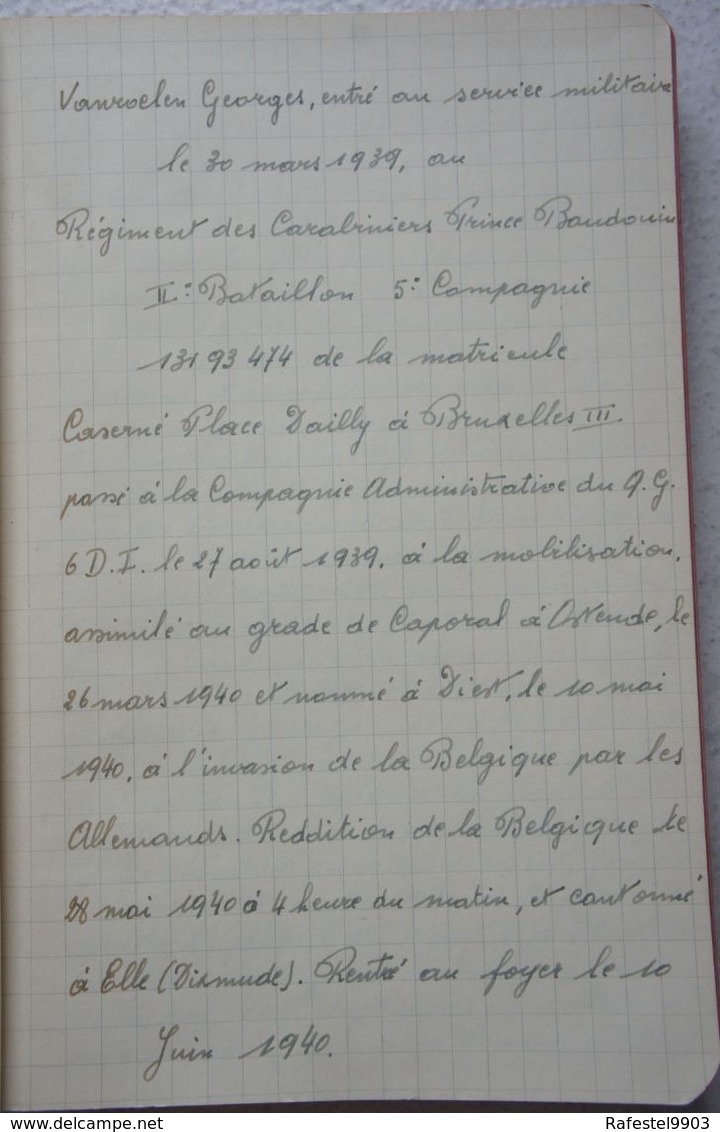 Vanroelen Georges, entré au service militaire
le 30 mars 1939, au
Régiment des Carabiniers Prince Baudouin
II°: Bataillon 5° Compagnie
131 93 474 de la matricule
Caserné Place Dailly à Bruxelles III.
passé à la Compagnie Administrative du Q.G.
6 D.I. le 27 août 1939. à la mobilisation.
assimilé au grade de Caporal à Ostende, le
26 mars 1940 et nommé à Diest, le 10 mai
1940. à l'invasion de la Belgique par les
Allemands. Reddition de la Belgique le
28 mai 1940 à 4 heure du matin, et cantonné
à Elle (Dixmude). Rentré au foyer le 10
Juin 1940.
Rafestel9903